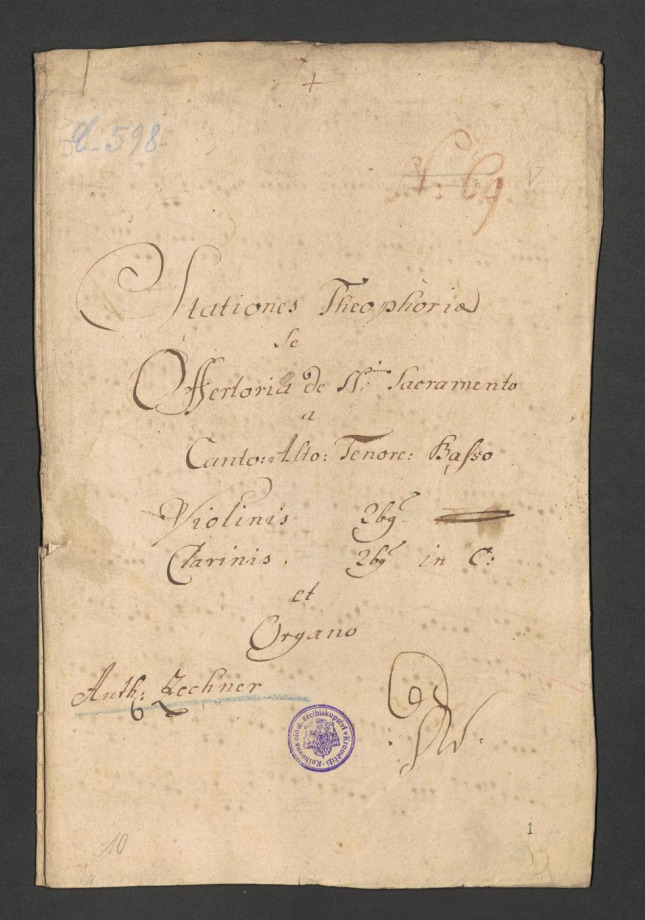 C. 598
N: 69
Stationes Theophoriæ
Se
Offertoria de SS.mo Sacramento
a
Canto: Alto: Tenore: Basso
Violinis 2bg
Clarinis. 2bg in C:
et
Organo
Auth: Zechner
Knihovna olom. arcibiskupství v Kroměříži
10
1